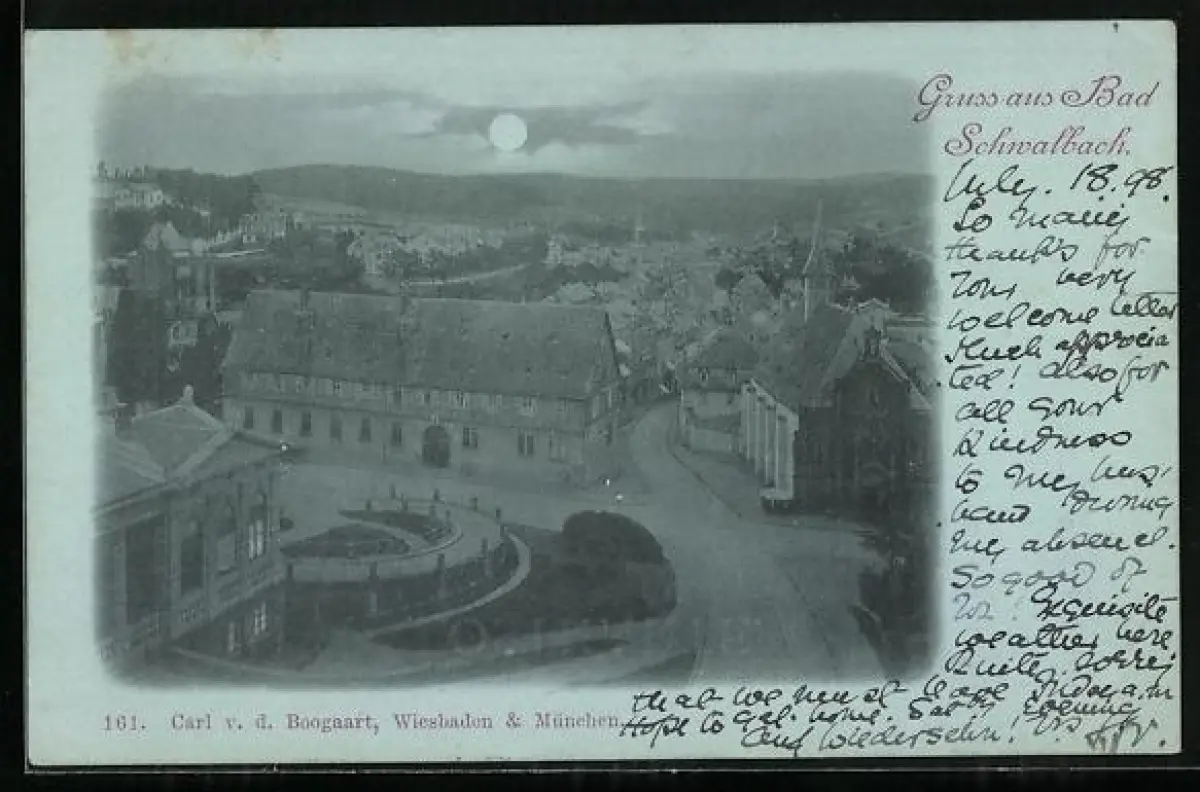 Gruss aus Bad
Schwalbach.
July. 18. 98.
So many
thanks for
Your very
welcome letter
Much apprecia
ted! also for
all your
Kindness
to my hus
band during
my absence.
So good of
You! Exquisite
weather here
Quite sorry
that we must leave Friday a.m
Hope to get home. Sat'y Evening
auf wiedersehn!
161. Carl v. d. Boogaart, Wiesbaden & München.